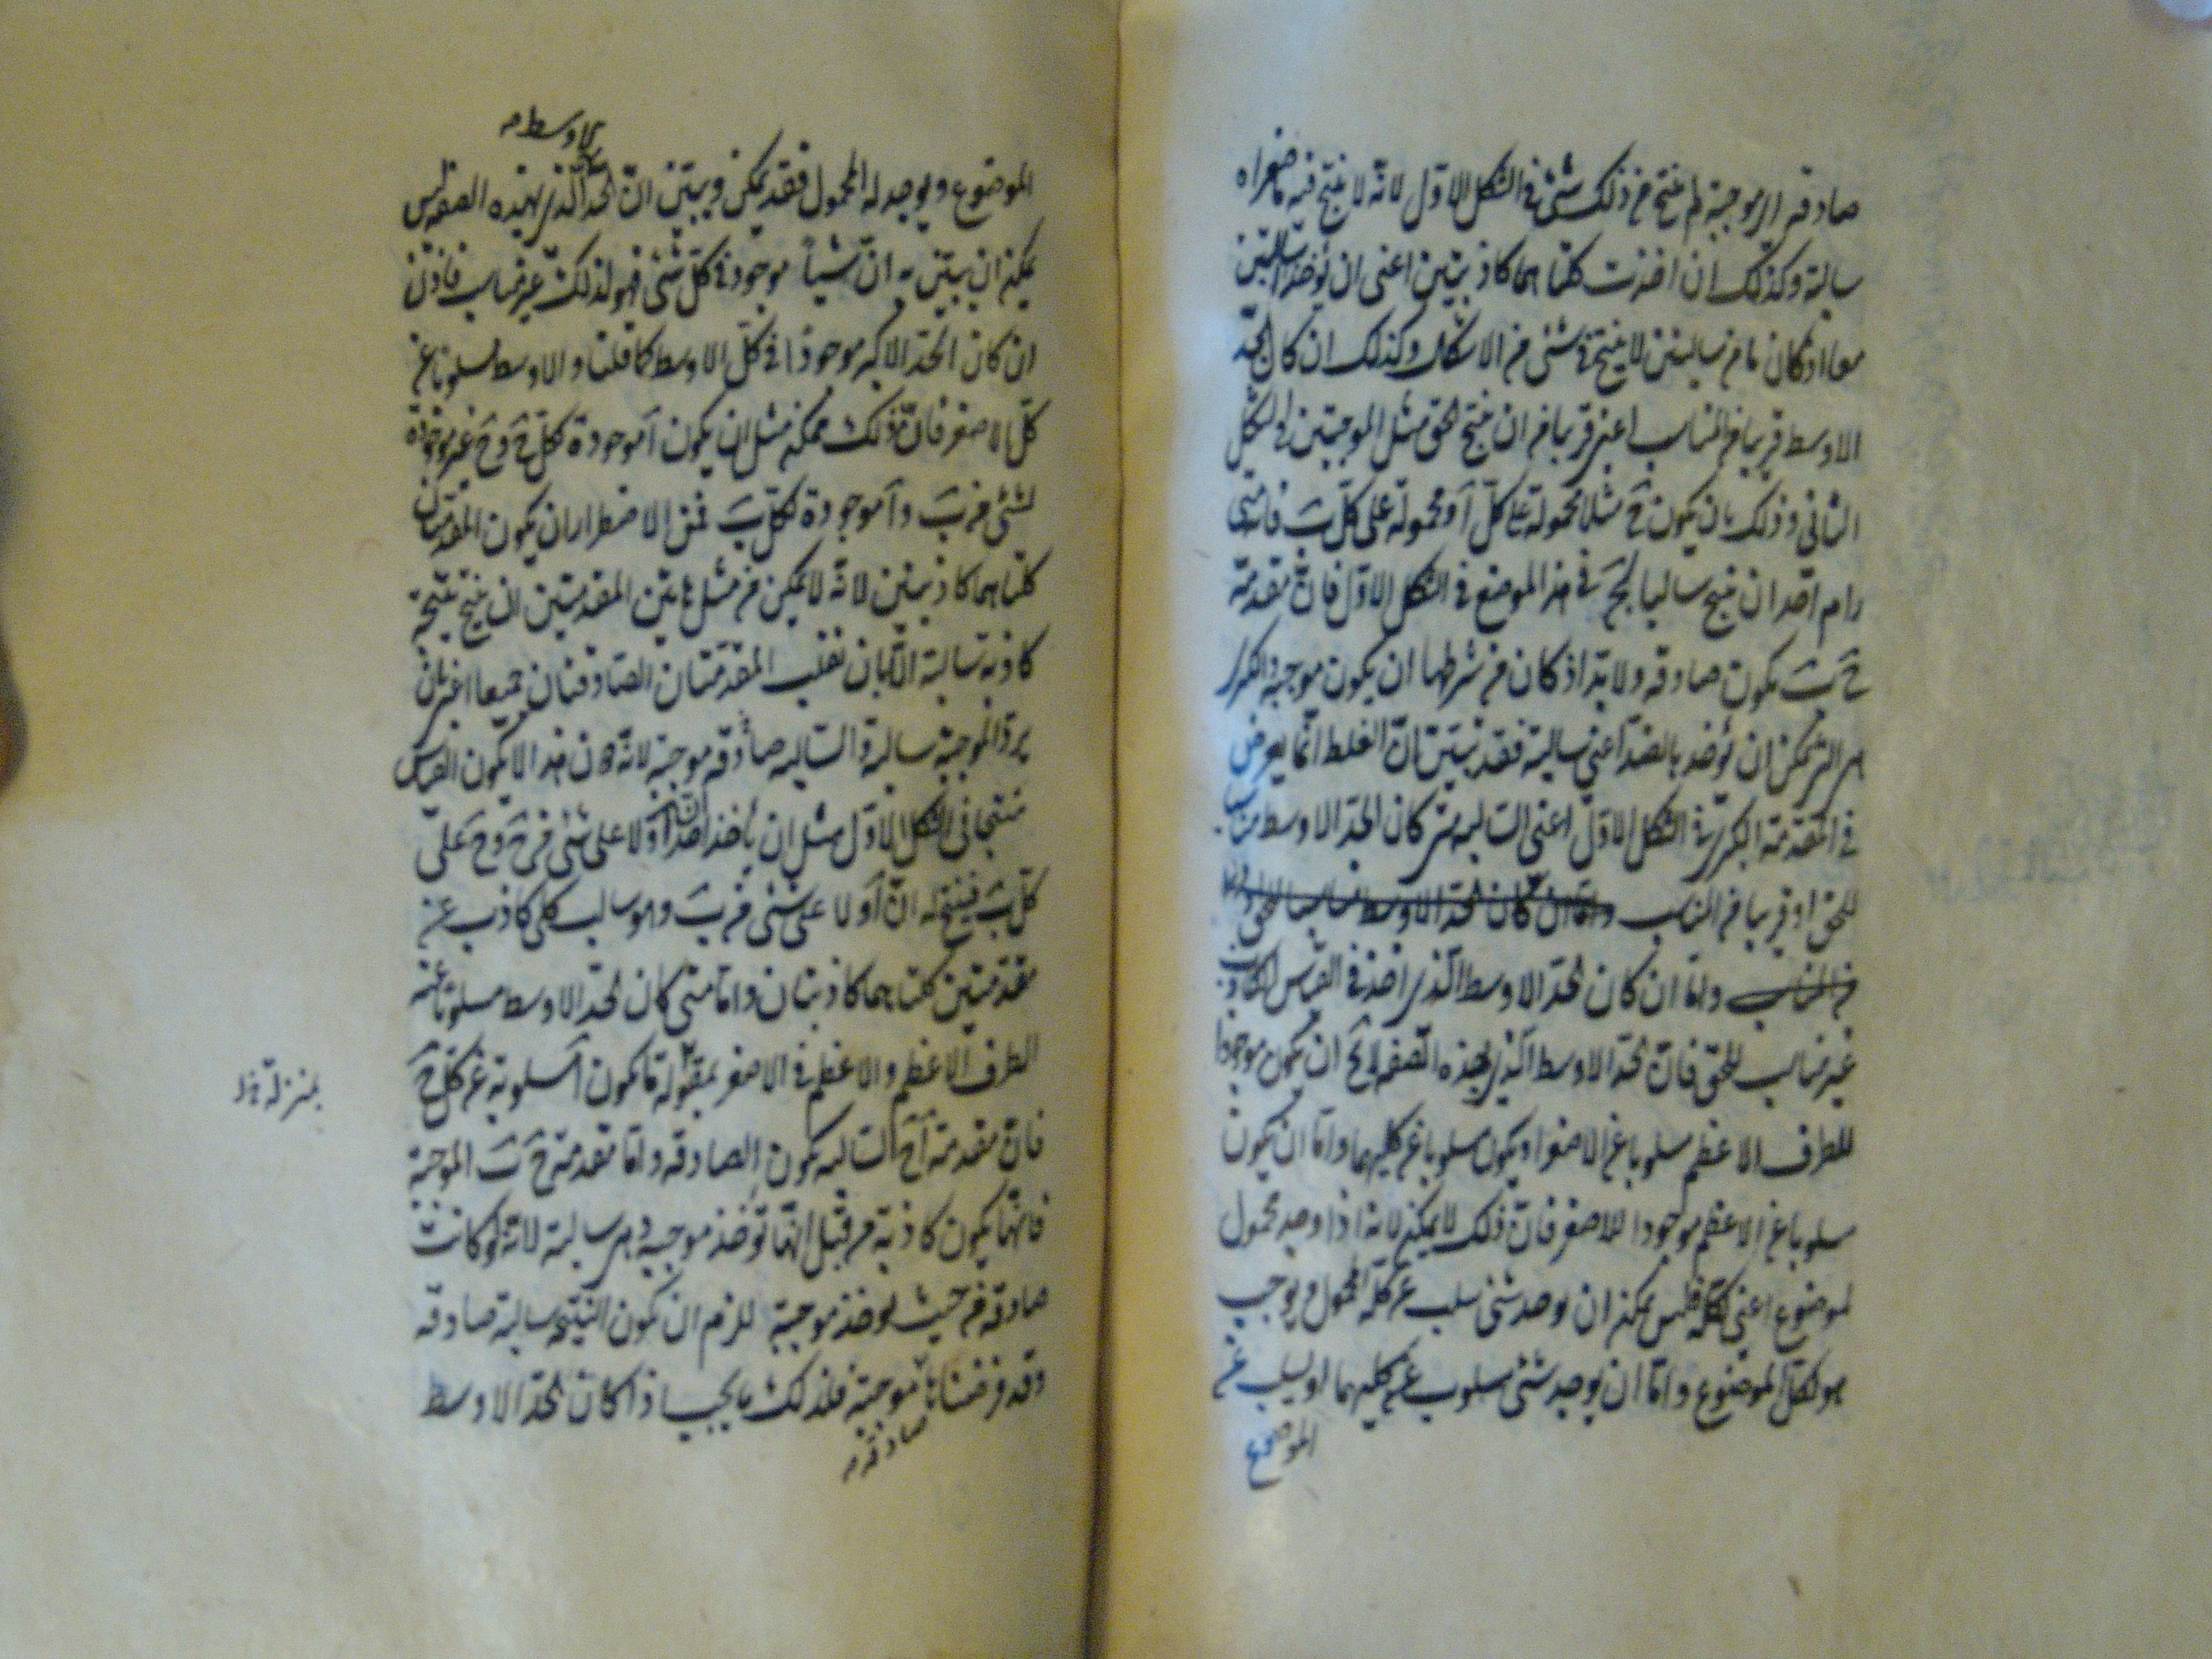 صادقه الموجبة لم ينتج من ذلك شئ في الشكل الاول لانه لا ينتج فيه ما صغراه
سالبة وكذلك ان اخذت كلتاهما كاذبتين اعنى ان يؤخذا سالبتين
معا اذ كان ما من سالبتين لا ينتج في شئ من الاشكال وكذلك ان كان الحد
الاوسط قريبا من المناسب اعنى قريبا من ان ينتج الحق مثل الموجبتين في الشكل
الثاني وذلك بان يكون ج مثلا محمولة على كل آ ومحمولة على كل ب فانه متى
رام احد ان ينتج سالبا في هذا الموضع في الشكل الاول فان مقدمة
ج ب يكون صادقه ولا بد اذ كان من شرطها ان يكون موجبة والكبرى
هى التى يمكن ان تؤخذ بالضد اعنى سالبة فقد تبين ان الغلط انما يعرض
في المقدمة الكبرى في الشكل الاول اعنى السالبه متى كان الحد الاوسط مناسبا
للحق او قريبا من المناسب واما ان كان الحد الاوسط مناسبا للحق
من المناسب واما ان كان الحد الاوسط الذى اخذ في القياس الكاذب
غير مناسب للحق فان الحد الاوسط الذى بهذه الصفه لا يخ ان يكون موجودا
للطرف الاعظم مسلوبا عن الاصغر او يكون مسلوبا عن كليهما واما ان يكون
مسلوبا عن الاعظم موجودا للاصغر فان ذلك لا يمكن لانه اذا وجد محمول
لموضوع اعنى لكله فليس يمكن ان يوجد شئ يسلب عن كله المحمول ويوجب
هو لكل الموضوع واما ان يوجد شئ مسلوب عن كليهما او يسلب عن
الموضوع
الاوسط
الموضوع ويوجد له المحمول فقد يمكن ويبين ان الحد الذى بهذه الصفه ليس
يمكن ان يبين به ان شيأ موجود في كل شئ فهو لذلك غير مناسب فاذن
ان كان الحد الاكبر موجودا في كل الاوسط كما قلنا والاوسط مسلوبا عن
كل الاصغر فان ذلك ممكن مثل ان يكون آ موجودة لكل ج و ج غير موجودة
لشئ من ب و آ موجودة لكل ب فمن الاضطرار ان يكون المقدمتان
كلتاهما كاذبتين لانه لا يمكن من مثل هاتين المقدمتين ان ينتج نتيجة
كاذبه سالبة الا بان تقلب المقدمتان الصادقتان جميعا اعنى بان
يرد الموجبة سالبة والسالبه صادقه موجبة لانه دون هذا لا يكون القياس
منتجا في الشكل الاول مثل ان يأخذ احد ان آ ولا على شئ من ج و ج على
كل ب فينتج له ان آ ولا على شئ من ب وهو سالب كلى كاذب عن
مقدمتين كلتاهما كاذبتان واما متى كان الحد الاوسط مسلوبا عنه
الطرف الاعظم والاعظم في الاصغر بمقوله ما يكون آ مسلوبة عن كل ج
بمنزلة ما
فان مقدمة آ ج السالبه يكون الصادقه واما مقدمة ج ب الموجبة
فانها يكون كاذبة من قبل انها تؤخذ موجبه وهى سالبة لانه لو كانت
صادقه من حيث يوخذ موجبة للزم ان يكون النتيجه سالبة صادقه
وقد فرضناها موجبة فلذلك ما يجب اذا كان الحد الاوسط
صادقه